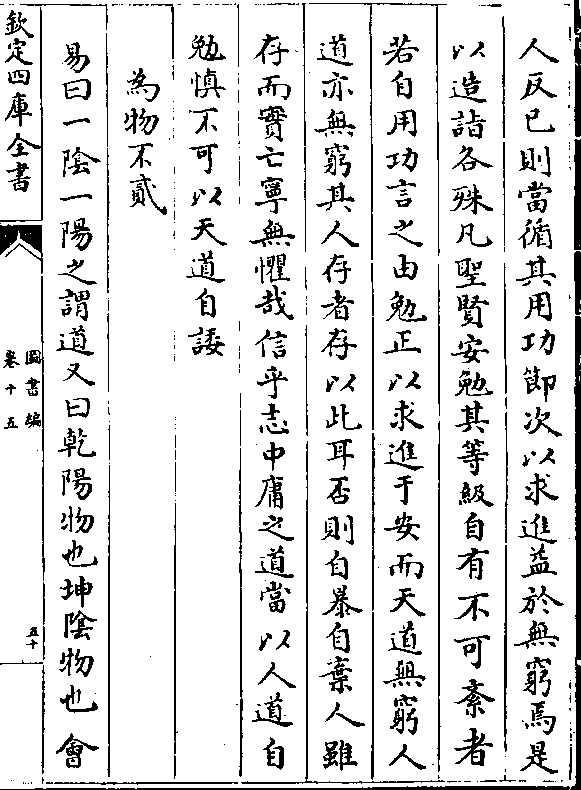 人反已則當循其用功節次以求進益於無窮焉是
以造詣各殊凡聖賢安勉其等級自有不可紊者
若自用功言之由勉正以求進于安而天道無窮人
道亦無窮其人存者存以此耳否則自暴自棄人雖
存而實亡寧無懼哉信乎志中庸之道當以人道自
勉慎不可以天道自諉
為物不貳
易曰一陰一陽之謂道又曰乾陽物也坤陰物也會
欽定四庫全書
圖書編
卷十五
五十